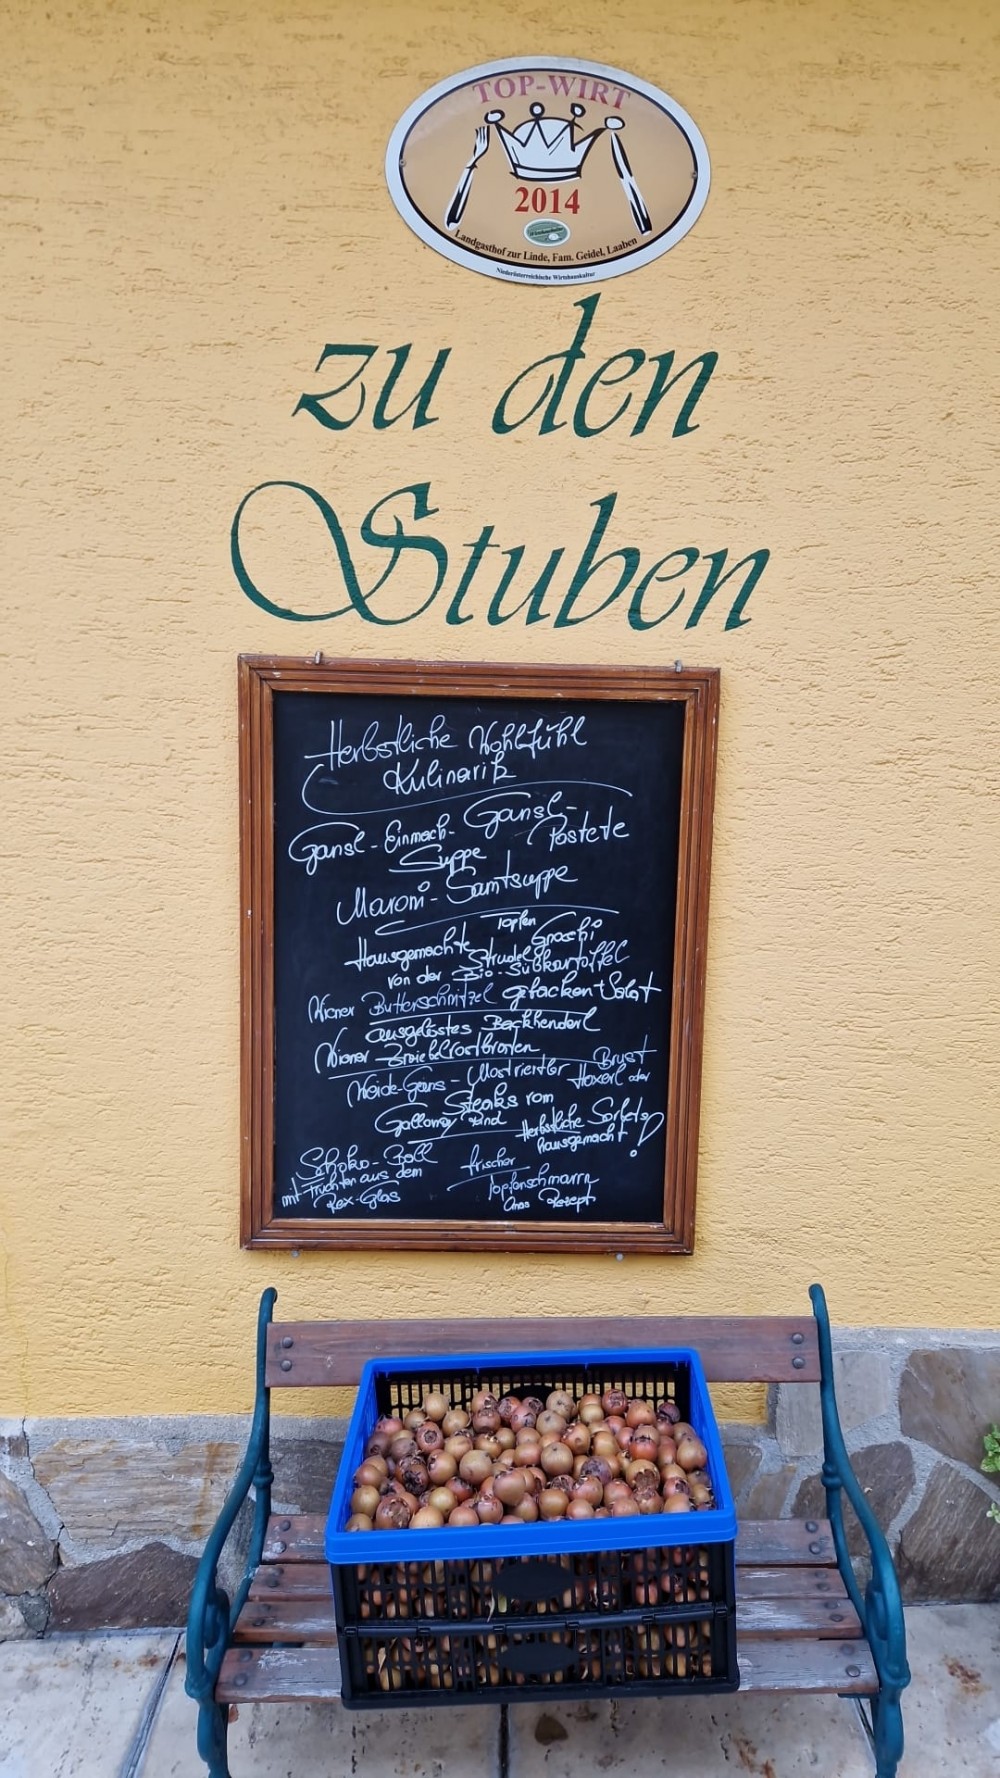 TOP-WIRT
2014
Landgasthof zur Linde, Fam. Geidel, Laaben
Niederösterreichische Wirtshauskultur
zu den
Stuben
Herbstliche Wohlfühl
Kulinarik
Gansl-Einmach- Gansl-
Suppe Pastete
Maroni-Samtsuppe
Topfen
Hausgemachte Gnocchi
Strudel
von der Bio-Süßkartoffel
Wiener Butterschnitzel gebacken + Salat
ausgelöstes Backhenderl
Wiener Zwiebelrostbraten
Weide-Gans- Brust
Haxerl oder
Steaks vom
Galloway Rind
Herbstliche Sorbets
hausgemacht!
Schoko-Ball
mit Früchten aus dem
Rex-Glas
frischer
Topfenschmarrn
Omas Rezept